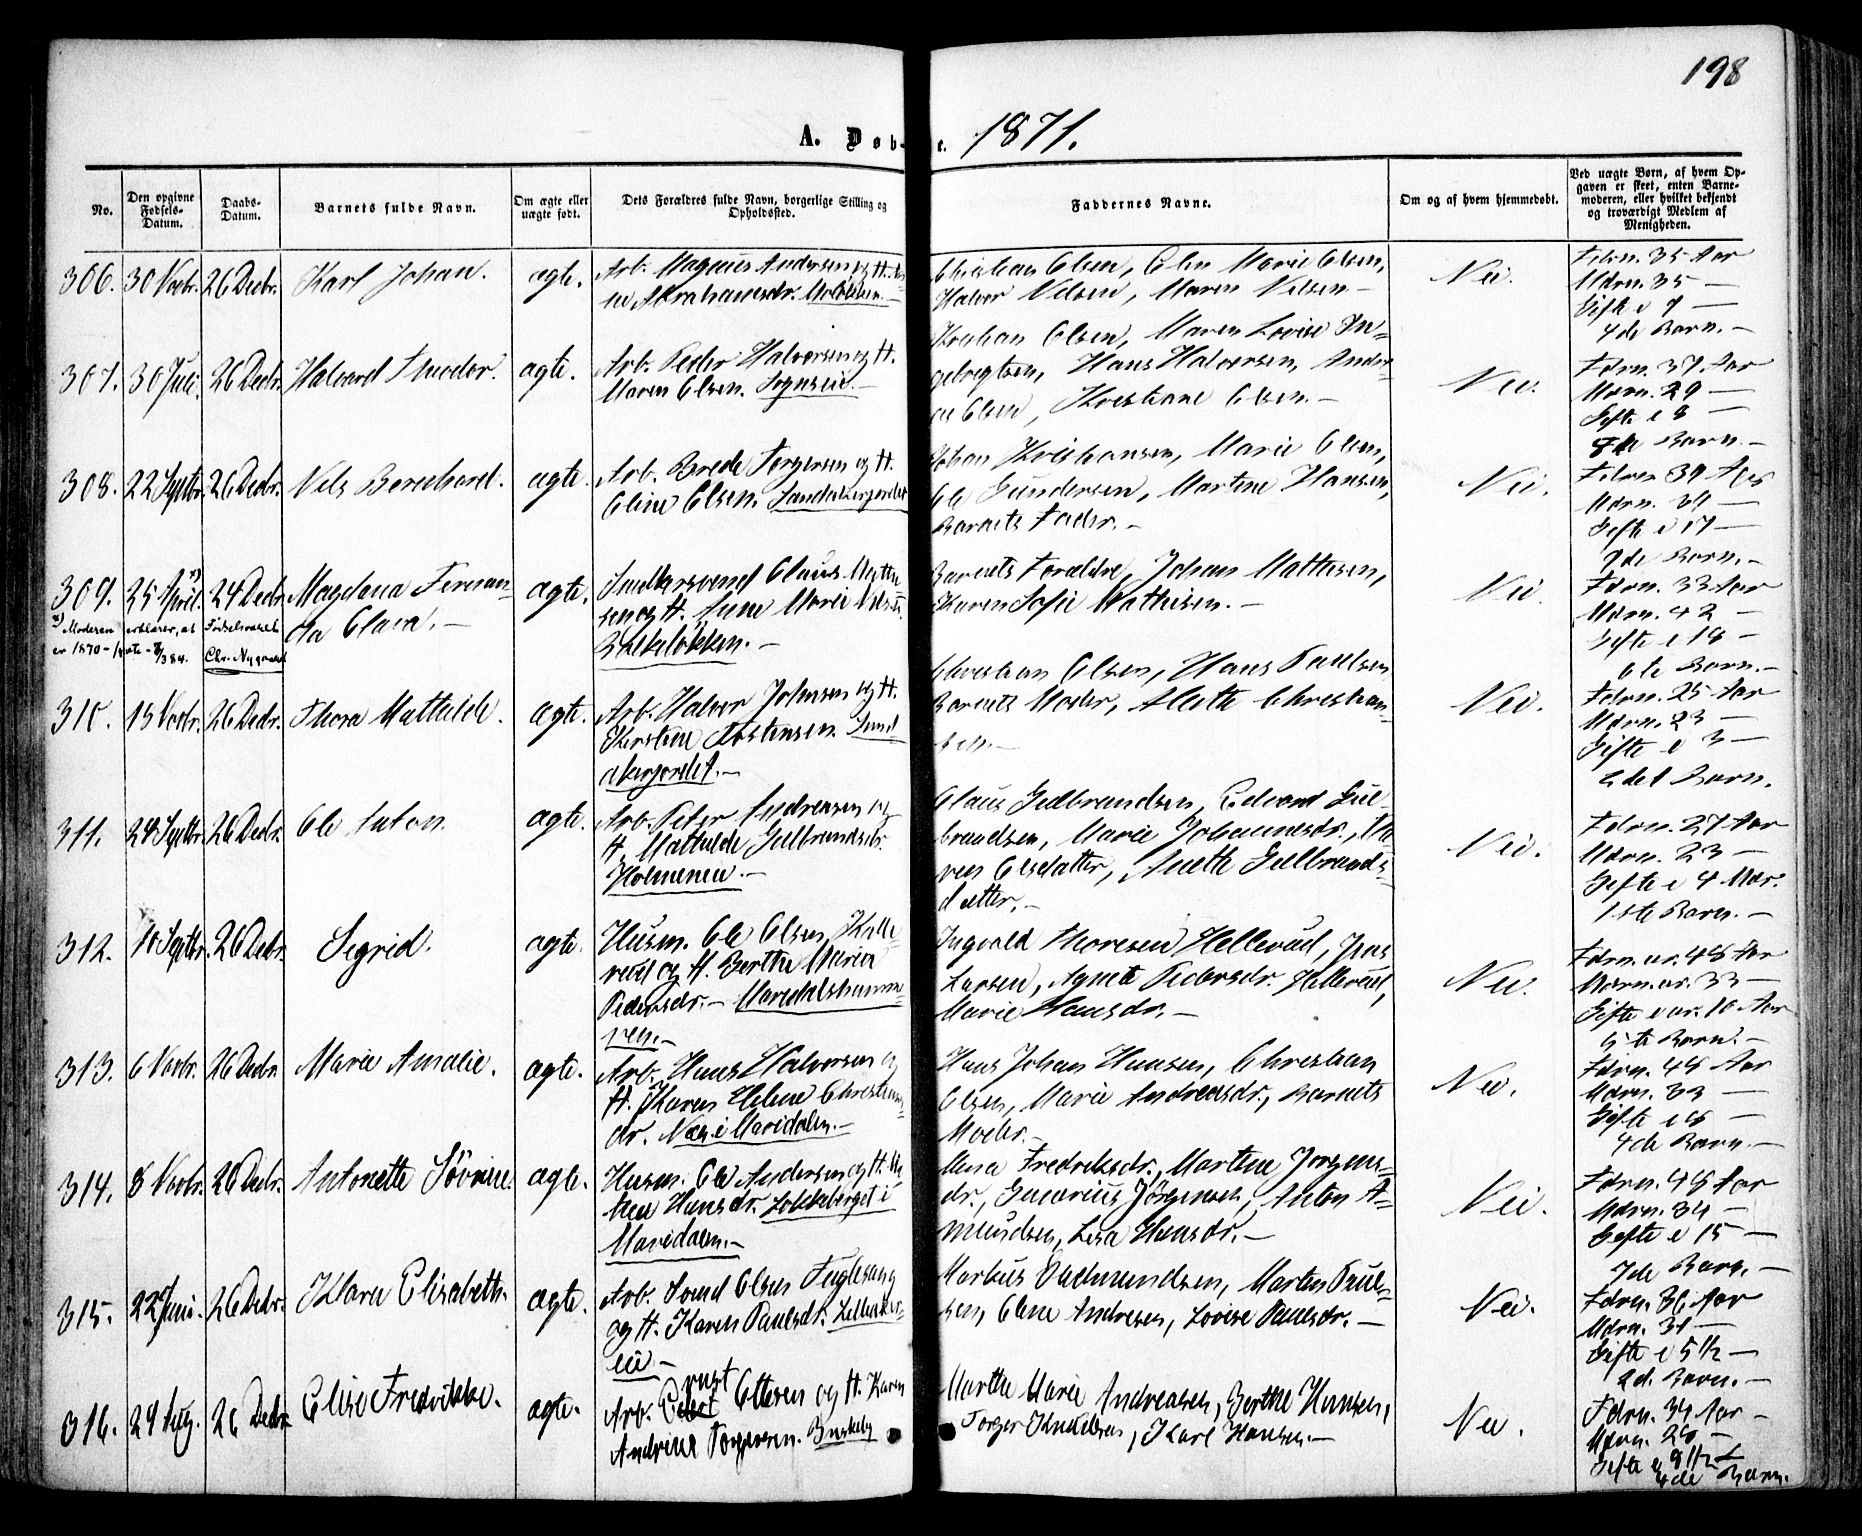 198
A. Døb- e. 1871.
No.
Den opgivne Fødsels-Datum.
Daabs-Datum.
Barnets fulde Navn.
Om ægte eller uægte født.
Dets Forældres fulde Navn, borgerlige Stilling og Opholdssted.
Faddernes Navne.
Om og af hvem hjemmedøbt.
Ved uægte Børn, af hvem Opgaven er skeet, enten Barnemoderen, eller hvilket bekjendt og troværdigt Medlem af Menigheden.
306. 30 Novbr. 26 Decbr. Karl Johan. ægte.
Arb. Magnus Andersen og H.
Abrahamsdr.
Christian Olsen, Marie Olsen,
Halvor Nilsen, Maren Nilsen –
Nei.
Fdrn. 35 Aar
Mdrn. 35 –
Gifte i 7 –
4de Barn. –
307. 30 Juli. 26 Decbr. Halvard Theodor. ægte.
Arb. Peder Halvorsen og H.
Maren Olsen. Sognseie. –
Kristian Olsen, Maren Lovise In-
gebrigtsen, Hans Halvorsen, Andre-
as Olsen, Kristiane Olsen. –
Nei.
Fdrn. 37 Aar
Mdrn. 29 –
Gifte i 8 –
Barn. –
308. 22 Septbr. 26 Decbr. Nils Bernhard. ægte.
Arb. Brede Torgersen og H.
Oline Olsen. Sandakerjordet
Johan Kristiansen, Marie Olsen,
Ole Gundersen, Martine Hansen,
Barnets Fader. –
Nei.
Fdrn. 39 Aar
Mdrn. 34 –
Gifte i 17 –
7de Barn. –
309. 25 April. x) 24 Decbr. Magdana Fernan-
da Clara. – ægte.
x) Moderen erklærer, at Fødselsaaret
er 1870 –
Chr. Nygaard
Smedsvend Claus Mathi-
sen og H. Anne Marie
Barnets Forældre, Johan Mathisen,
Karen Sofie Mathisen. –
Nei.
Fdrn. 33 Aar
Mdrn. 42 –
Gifte i 18 –
6te Barn. –
310. 15 Novbr. 26 Decbr. Thora Mathilde. ægte.
Arb. Halvor Johnsen og H.
Kirstine Torstensen. Sand-
akerjordet. –
Christian Olsen, Hans Paulsen
Barnets Moder, Alette Christian-
sen. –
Nei.
Fdrn. 25 Aar
Mdrn. 23 –
Gifte i 3 –
2det Barn.
311. 28 Septbr. 26 Decbr. Ole Anton. ægte.
Arb. Peter Andreasen og
H. Mathilde Gulbrandsdr.
Holmeneie. –
Claus Gulbrandsen, Edvard Gul-
brandsen, Marie Johannesdr., Ma-
ren Olsdatter, Anette Gulbrands-
datter. –
Nei.
Fdrn. 27 Aar
Mdrn. 23 –
Gifte i 4 Mdr.
1ste Barn. –
312. 10 Septbr. 26 Decbr. Sigrid. ægte.
Husm. Ole Olsen
og H. Berthe Maria
Pedersdr. – Maridalshamme-
ren. –
Ingvald Thoresen Hellerud, Jens
Larsen, Agnete Pedersdr. Hellerud,
Marie Hansdr. –
Nei.
Fdrn. ca. 48 Aar
Mdrn. ca. 33 –
Gifte i ca. 10 Aar
5te Barn. –
313. 6 Novbr. 26 Decbr. Marie Amalie. ægte.
Arb. Hans Halvorsen og
H. Karen Helene Christians-
dr. Næs i Maridalen. –
Hans Johan Hansen, Christian
Olsen, Marie Andreasdr., Barnets
Moder. –
Nei.
Fdrn. 44 Aar
Mdrn. 33 –
Gifte i 8 –
4de Barn. –
314. 8 Novbr. 26 Decbr. Antonette Sövrine. ægte.
Husm. Ole Andersen og H.
Hansdr. Lokkeberget i
Maridalen. –
Mina Fredriksdr., Martine Jørgens-
dr., Gunerius Jørgensen, Anton A-
mundsen, Lisa Hansdr. –
Nei.
Fdrn. 45 Aar
Mdrn. 34 –
Gifte i 15 –
7de Barn. –
315. 22 Juni. 26 Decbr. Klara Elisabeth. ægte.
Arb. Svend Olsen Fuglesang
og H. Karen Paulsdr. Lilleaker-
eie. –
Markus Gudmundsen, Martin Paul-
sen, Oline Andresen, Lovise Paulsdr. –
Nei.
Fdrn. 36 Aar
Mdrn. 31 –
Gifte i 5 1/2 –
2d. Barn. –
316. 29 Aug. 26 Decbr. Elise Fredrikke. ægte.
Arb. Ottesen og H. Karen
Andrine Torgersen. Buskeby
Marthe Marie Andreasen, Berthe Hansen,
Torger Knudsen, Karl Hansen. –
Nei.
Fdrn. 34 Aar –
Mdrn. 28 –
Gifte i 8 1/2 –
4de Barn.